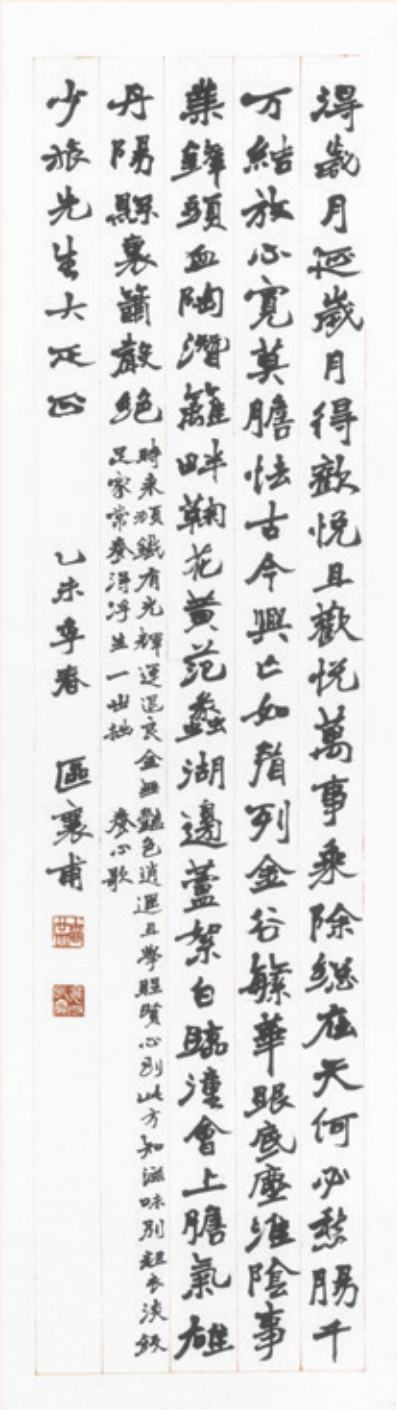 得歲月延歲月得歡悅且歡悅萬事乘除總在天何必愁腸千
万結放心寬莫膽怯古今興亡如眉列金谷繁華眼底塵淮陰事
業鋒頭血陶潛籬畔鞠花黃范蠡湖邊蘆絮白臨潼會上膽氣雄
丹陽縣裏簫聲絕
時來頑鐵有光輝運退良金無豔色逍遙且學聖賢心到此方知滋味別粗衣淡飯
足家常養得浮生一世拙 養心歌
少旅先生大疋正 乙未季春 區襄甫